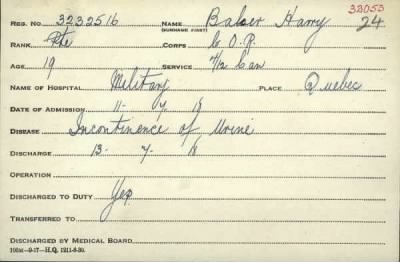 33053
REG. NO. 3232516 NAME Balser Harry 24
(SURNAME FIRST)
RANK Pte CORPS C.O.R.
AGE 19 SERVICE 7/12 Can
NAME OF HOSPITAL Military PLACE Quebec
DATE OF ADMISSION 11- 7 18
DISEASE Incontinence of Urine
DISCHARGE 13- 7- 18
OPERATION
DISCHARGED TO DUTY Yes
TRANSFERRED TO
DISCHARGED BY MEDICAL BOARD
100M.—9-17—H.Q. 1211-8-30.